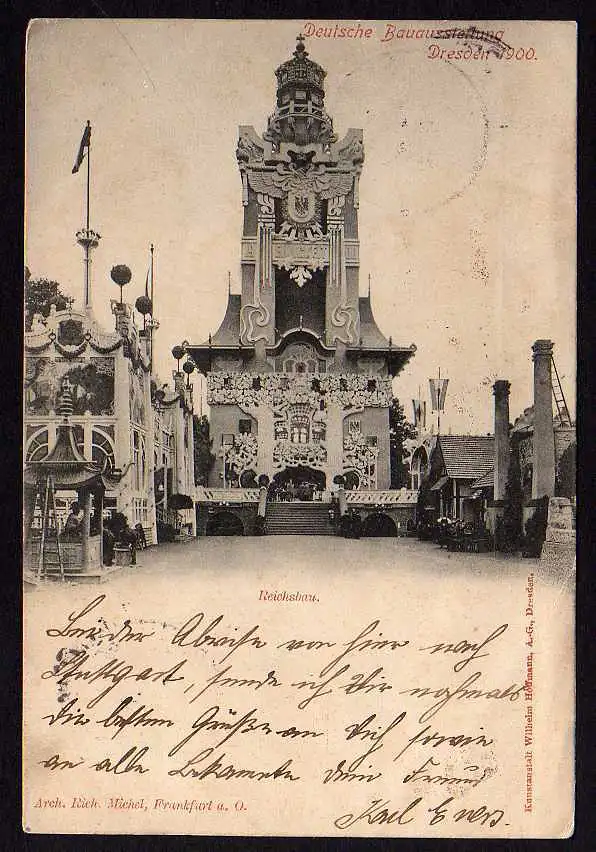 Deutsche Bauausstellung
Dresden 1900.
Reichsbau.
Bei der Abreise von hier nach
Stuttgart, sende ich Dir nochmals
die besten Grüße an Dich sowie
an alle Bekannte Dein Freund
Karl
Arch. Rich. Michel, Frankfurt a. O.
Kunstanstalt Wilhelm Hoffmann, A.-G., Dresden.